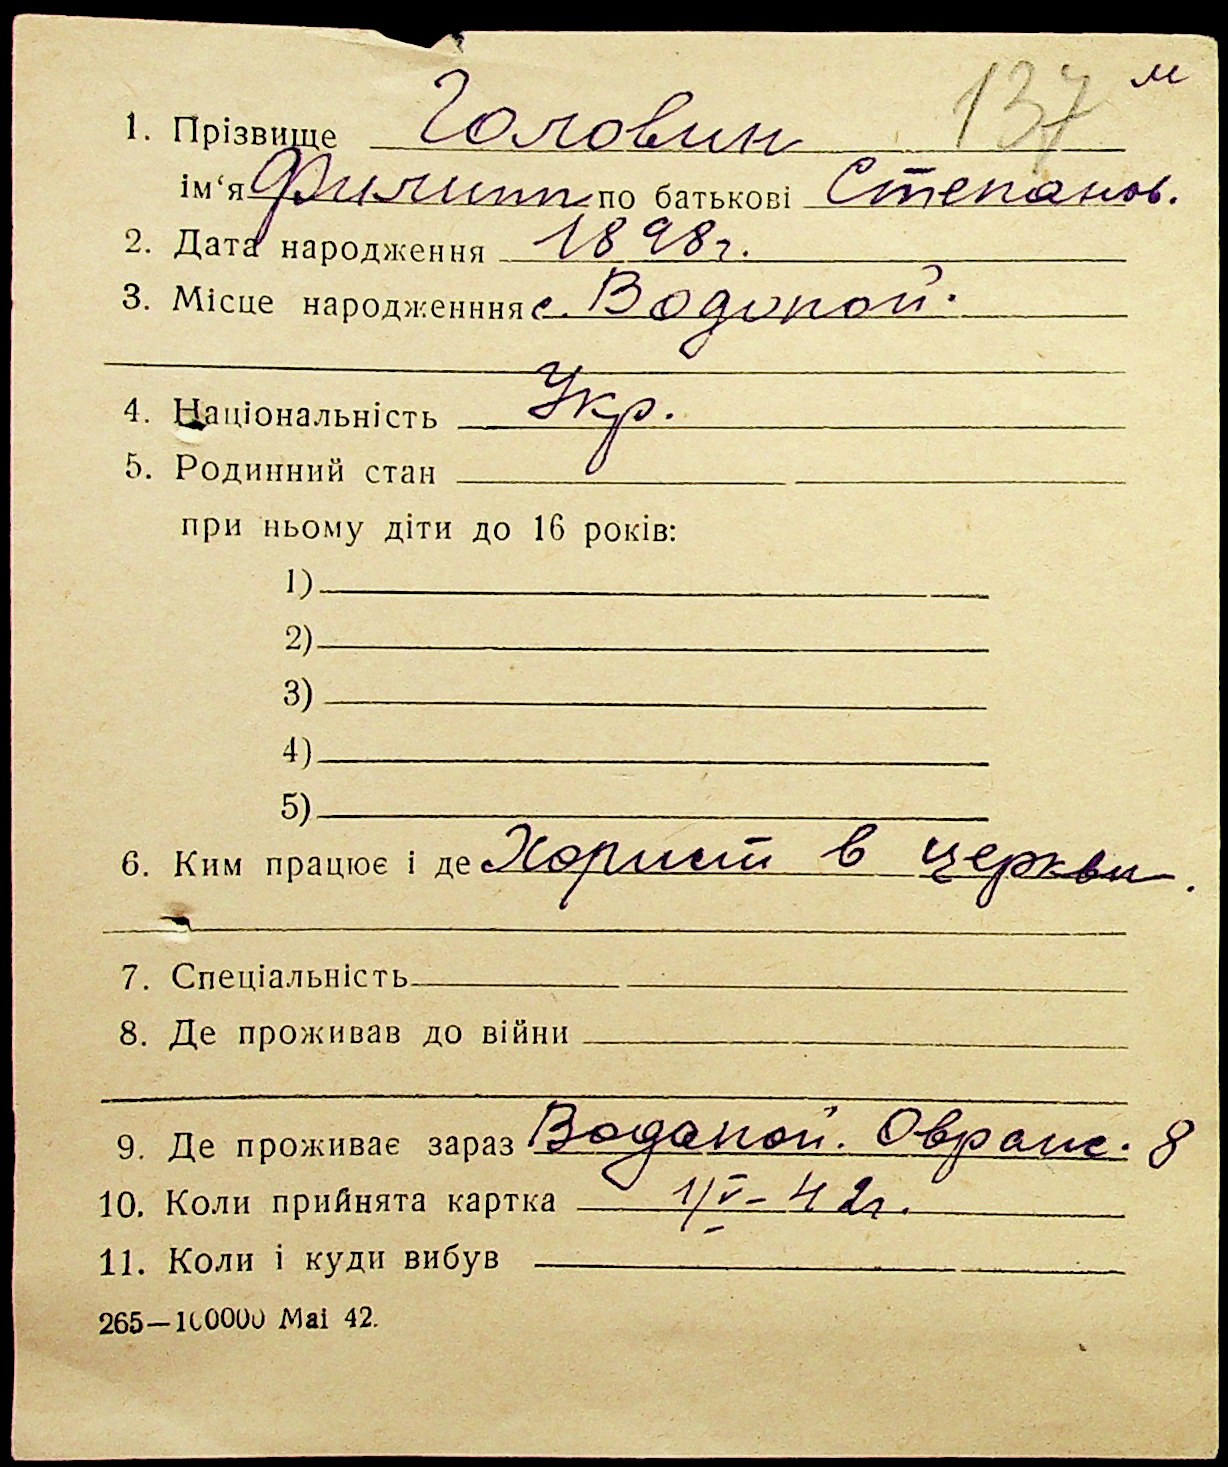 137 м
1. Прізвище Головин
ім‘я Филипп по батькові Степанов.
2. Дата народження 1898г.
3. Місце народженння с. Водопой.
4. Національність Укр.
5. Родинний стан
при ньому діти до 16 років:
1)
2)
3)
4)
5)
6. Ким працює і де Хорист в церкви.
7. Спеціальність
8. Де проживав до війни
9. Де проживає зараз Водопой. Овраж. 8
10. Коли прийнята картка 1/V-42г.
11. Коли і куди вибув
265—100000 Mai 42.